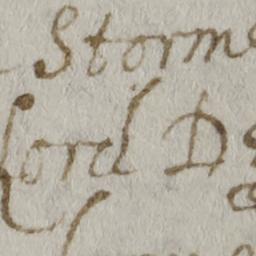 Storme
Lord D